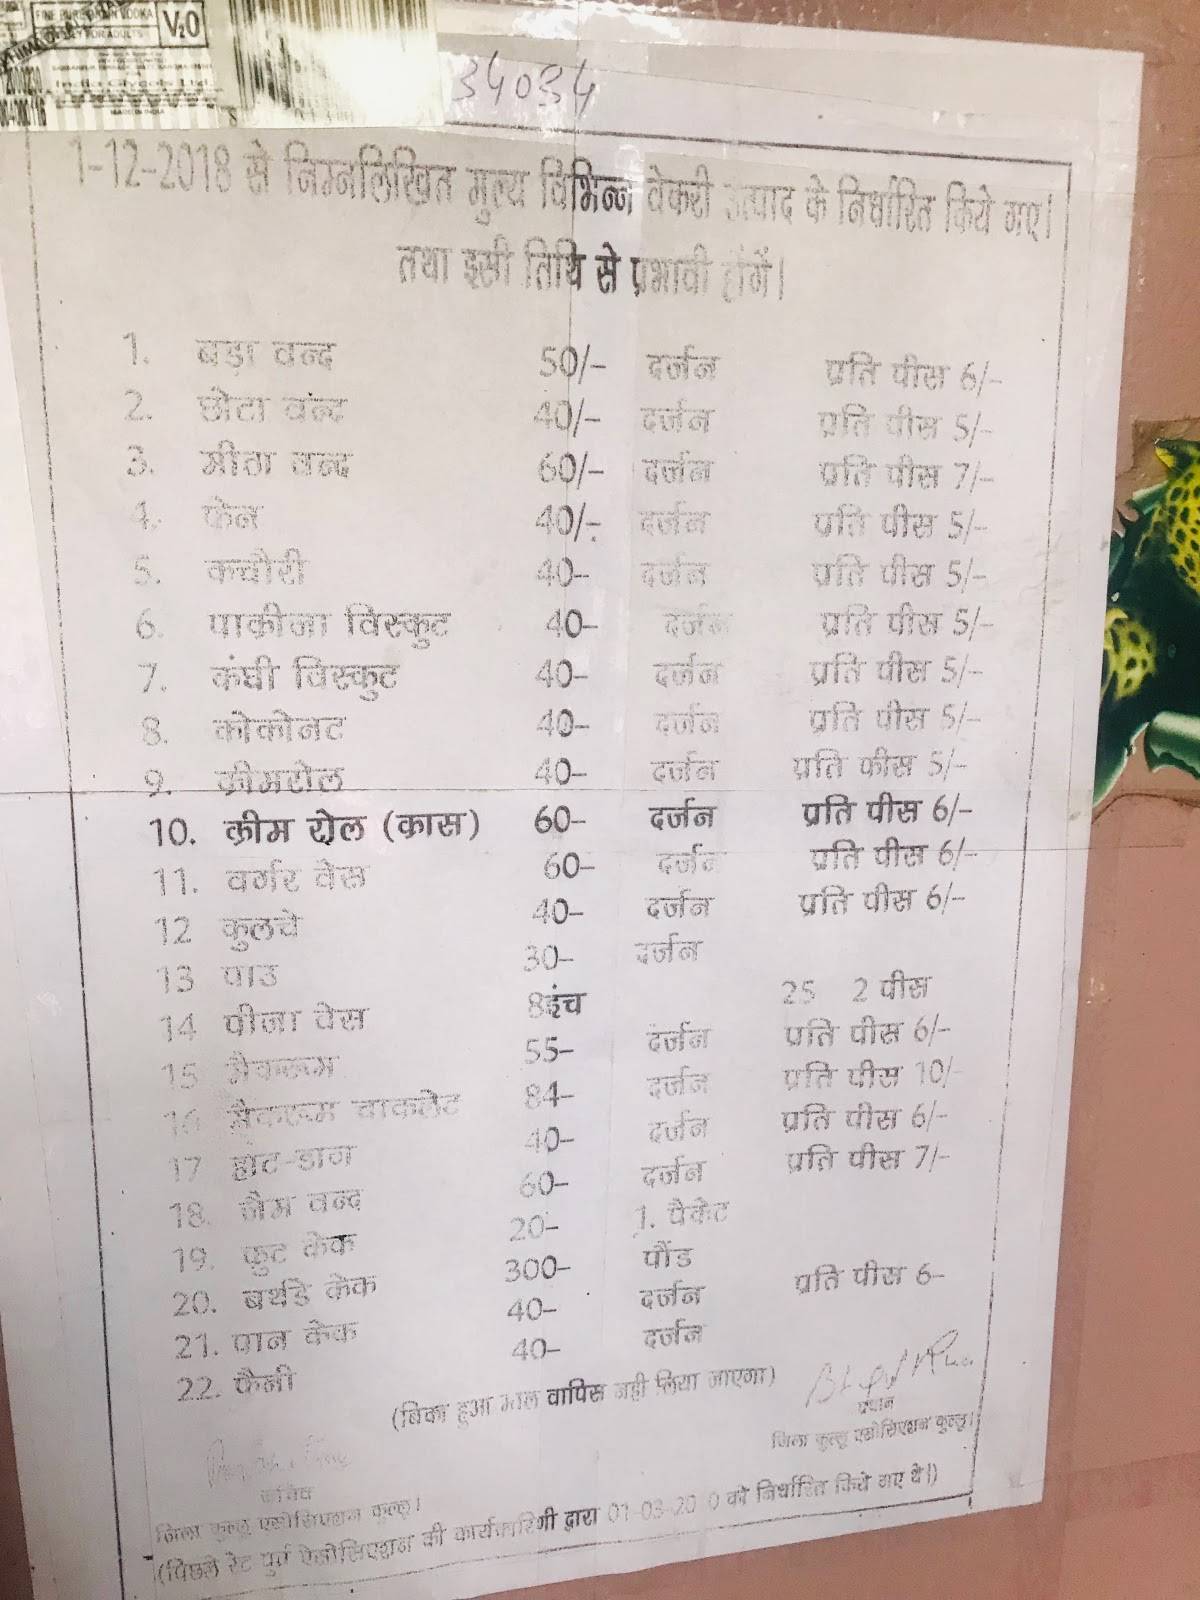 FINE PURE GRAIN VODKA
V2O
ONLY FOR ADULTS
India Glycols Ltd
MADE IN INDIA
34034
1-12-2018 से निम्नलिखित मुल्य विभिन्न वेकरी उत्पाद के निर्धारित किये गए।
तथा इसी तिथि से प्रभावी होंगें।
1. बड़ा वन्द 50/- दर्जन प्रति पीस 6/-
2. छोटा वन्द 40/- दर्जन प्रति पीस 5/-
3. मीठा वन्द 60/- दर्जन प्रति पीस 7/-
4. फेन 40/- दर्जन प्रति पीस 5/-
5. कचौरी 40- दर्जन प्रति पीस 5/-
6. पाकीजा विस्कुट 40- दर्जन प्रति पीस 5/-
7. कंघी विस्कुट 40- दर्जन प्रति पीस 5/-
8. कोकोनट 40- दर्जन प्रति पीस 5/-
9. क्रीमरोल 40- दर्जन प्रति फीस 5/-
10. क्रीम रोल (क्रास) 60- दर्जन प्रति पीस 6/-
11. वर्गर वेस 60- दर्जन प्रति पीस 6/-
12 कुलचे 40- दर्जन प्रति पीस 6/-
13 पाउ 30- दर्जन
14 पीजा वेस 8इंच 25 2 पीस
15 मैकरूम 55- दर्जन प्रति पीस 6/-
16 मैकरूम चाकलेट 84- दर्जन प्रति पीस 10/-
17 हाट-डाग 40- दर्जन प्रति पीस 6/-
18. जैम वन्द 60- दर्जन प्रति पीस 7/-
19. फ्रुट केक 20- 1. पैकेट
20. बर्थडे केक 300- पौंड
21. पान केक 40- दर्जन प्रति पीस 6-
22. फैनी 40- दर्जन
(बिका हुआ माल वापिस नही लिया जाएगा)
प्रधान
जिला कुल्लू एसोसिएशन कुल्लू।
सचिव
जिला कुल्लू एसोसिएशन कुल्लू।
(पिछले रेट पुर्व ऐसोसिएशन की कार्यकारिणी द्वारा 01-03-20 0 को निर्धारित किये गए थे।)